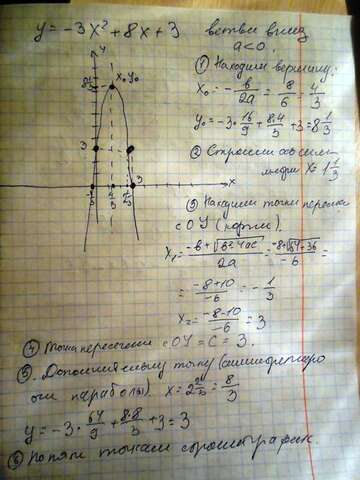 y = -3x² + 8x + 3 ветви вниз
a<0.
① Находим вершину:
x₀ = -b/2a = 8/6 = 4/3
y₀ = -3·16/9 + 8·4/3 + 3 = 8 1/3
② Строим ось сим
x = 1 1/3
③ Находим точки пересеч
с OY (корни).
x₁ = (-b+√(b²-4ac))/2a = (-8+√(64+36))/-6 =
= (-8+10)/-6 = -1/3
x₂ = (-8-10)/-6 = 3
④ Точка пересечения с OY = C = 3.
⑤. Дополнительную точку
оси параболы). x = 2 2/3 = 8/3
y = -3·64/9 + 8·8/3 + 3 = 3
⑥ По пяти точкам строим график.
y
x₀ y₀
3
x
-1/3 4/3 3